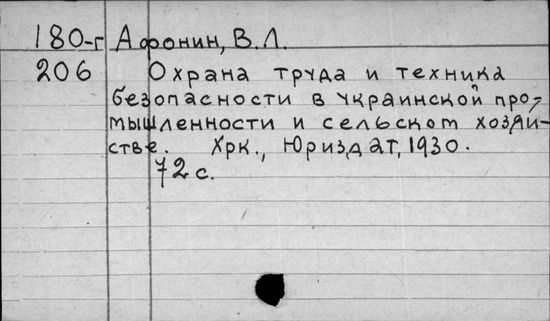 180-г Афонин, В.Л.
206 Охрана труда и техника
безопасности в украинской про-
мышленности и сельском хозяй-
стве. Хрк., Юриздат, 1930.
72 с.